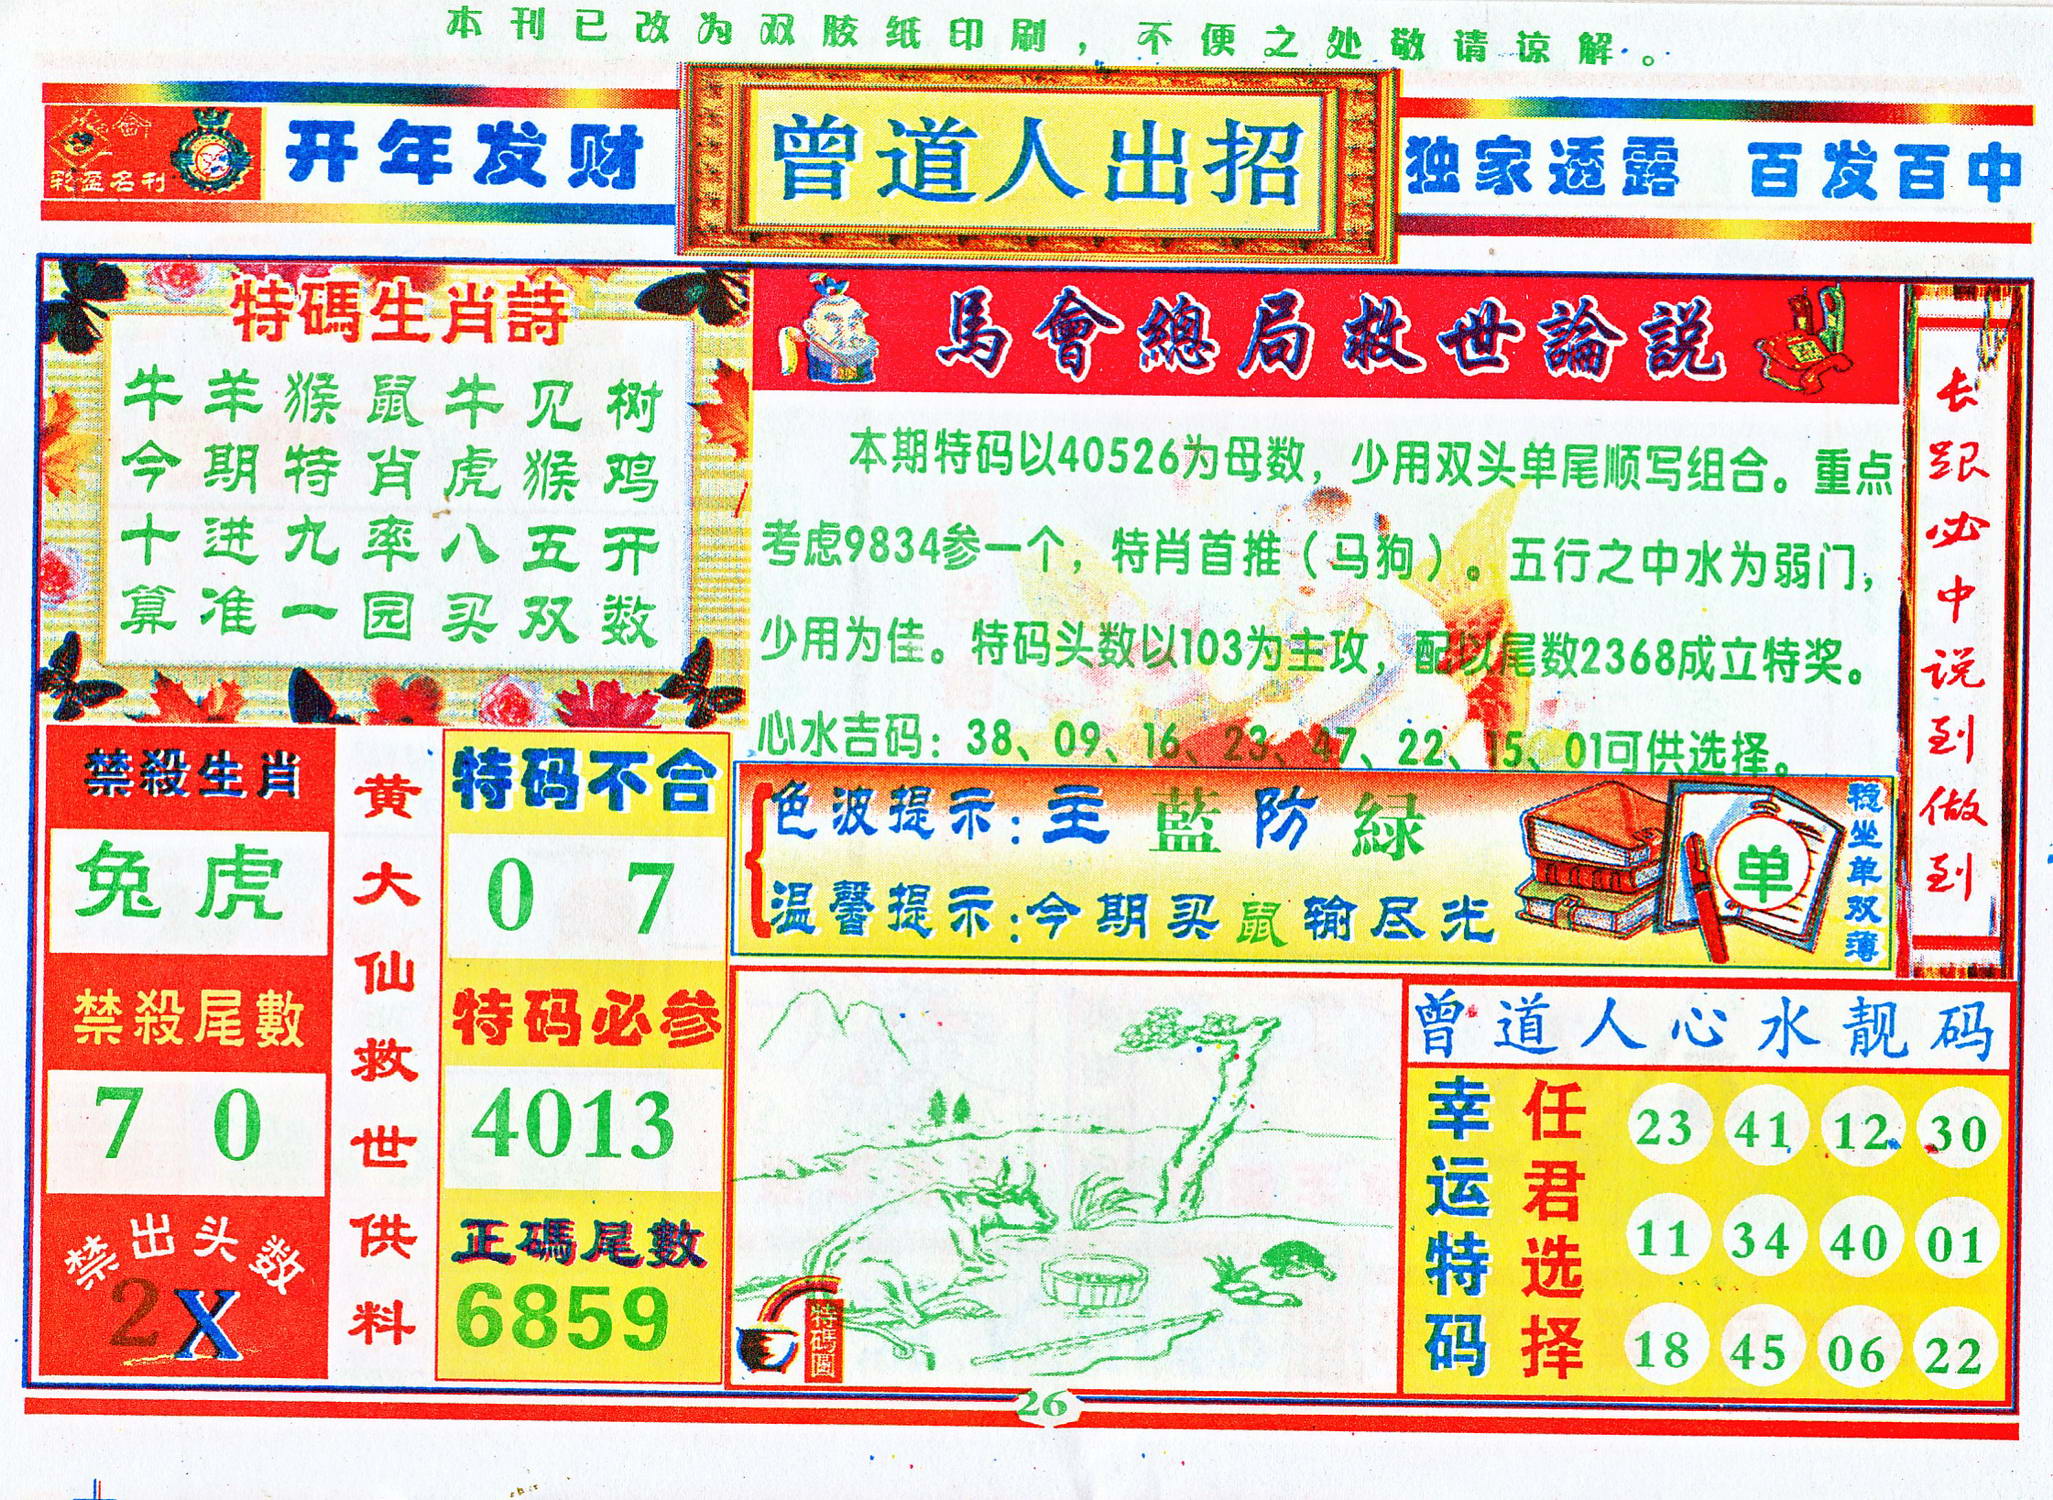 本刊已改为双胶纸印刷，不便之处敬请谅解。
彩盈名刊
开年发财
曾道人出招
独家透露 百发百中
特碼生肖詩
牛羊猴鼠牛见树
今期特肖虎猴鸡
十进九率八五开
算准一园买双数
馬會總局救世論説
本期特码以40526为母数，少用双头单尾顺写组合。重点
考虑9834参一个，特肖首推（马狗）。五行之中水为弱门，
少用为佳。特码头数以103为主攻，配以尾数2368成立特奖。
心水吉码：38、09、16、23、47、22、15、01可供选择。
长跟必中说到做到
色波提示：主藍防緑
温馨提示：今期买鼠输尽光
单
稳坐单双薄
禁殺生肖
兔虎
禁殺尾數
7 0
禁出头数
2X
黄大仙救世供料
特码不合
0 7
特码必参
4013
正碼尾數
6859
特碼圖
曾道人心水靓码
幸运特码
任君选择
23 41 12 30
11 34 40 01
18 45 06 22
26